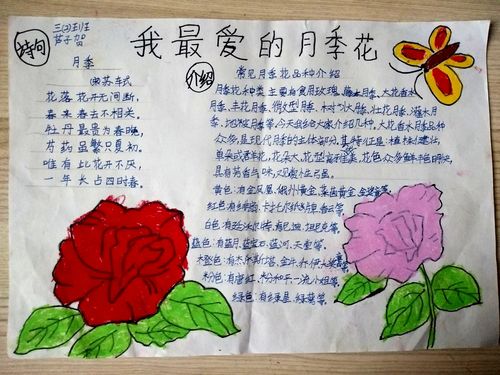 三(2)班
我最爱的月季花
诗句
月季
苏轼
花落花开无间断,
春来春去不相关。
牡丹最贵为春晚,
芍药虽繁只夏初。
唯有此花开不厌,
一年长占四时春。
介绍
常见月季花品种介绍
月季花种类主要有食用玫瑰、藤本月季、大花香水
月季、丰花月季、微型月季、树状月季、壮花月季、灌木月
季、地被月季等。今天我给大家介绍几种。大花香水月季品种
众多,是现代月季的主体部分,其特征是:植株健壮,
单朵或群花,花朵大,花型高雅优美,花色众多鲜艳明快,
具有芳香
黄色:有金凤凰、俄州黄金、
红色:有
白色:有
蓝色:有蓝月、蓝宝石、蓝河、天堂等。
橙色:有
粉色:有唐红、粉和平、一流小姐等。
绿色:有绿星、绿萼等。